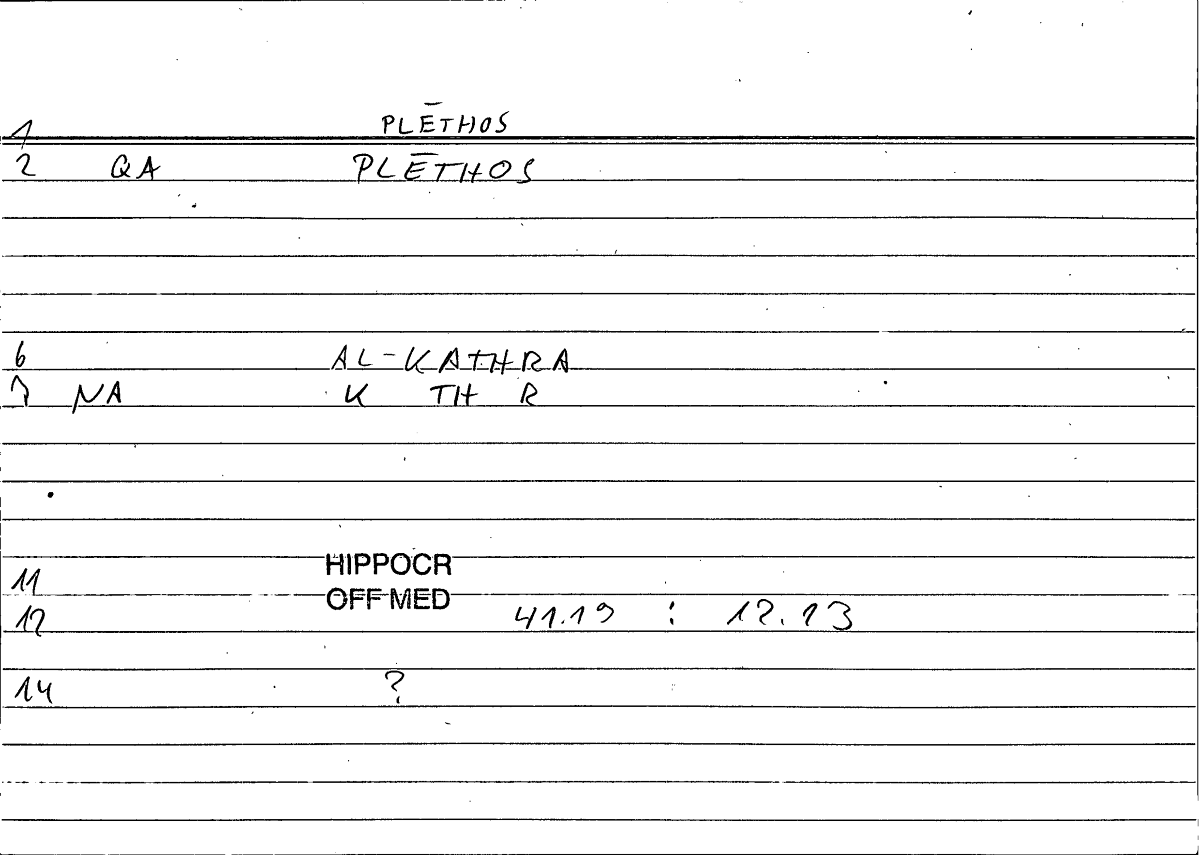 1 PLĒTHOS
2 QA PLĒTHOS
6 AL-KATHRA
7 NA K TH R
11 HIPPOCR
12 OFF MED 41.19 : 12.13
14 ?